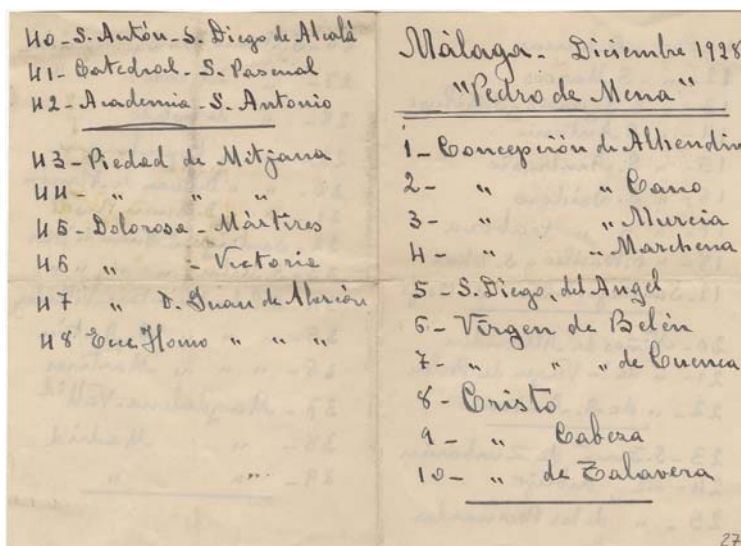 40-S. Antón-S. Diego de Alcalá
41-Catedral-S. Pascual
42-Academia-S. Antonio
43-Piedad de Mitjana
44- " " "
45-Dolorosa-Mártires
46 " - Victoria
47 " D. Juan de Alarcón
48 Ecce Homo " " "
Málaga-Diciembre 1928
"Pedro de Mena"
1-Concepción de Alhendin
2- " " Cano
3- " " Murcia
4- " " Marchena
5-S. Diego, del Angel
6-Virgen de Belén
7- " " " de Cuenca
8-Cristo
9- " Cabeza
10- " de Talavera
27